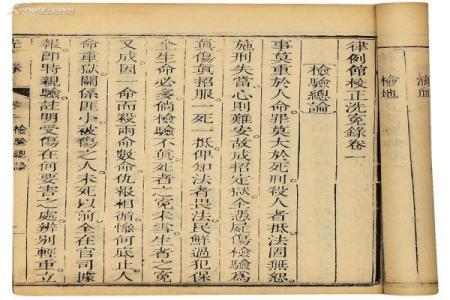 滴血
檢地
律例館校正洗冤錄卷一
檢驗總論
事莫重於人命罪莫大於死刑殺人者抵法固無恕
施刑失當心則難安故成招定獄全憑屍傷檢驗爲
眞傷眞招服一死一抵俾知法者畏法民鮮過犯保
全生命必多倘檢驗不眞死者之冤未雪生者之冤
又成因一命而殺兩命數命仇報相循慘何底止人
命重獄關係匪小被傷之人未死以前全在官司據
報即時親驗註明受傷在何要害之處辨別輕重立
檢驗總論